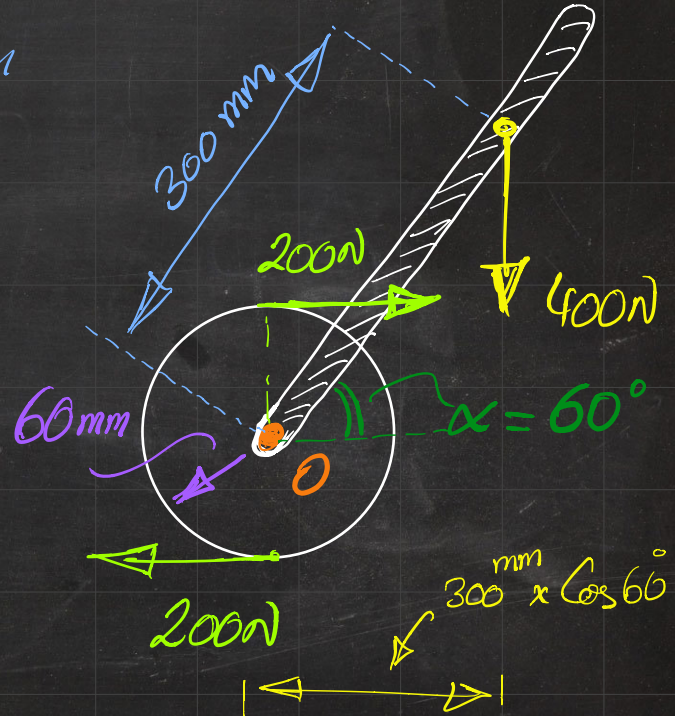 300 mm
200N
400N
60mm
α = 60°
O
200N
300 mm x Cos 60°